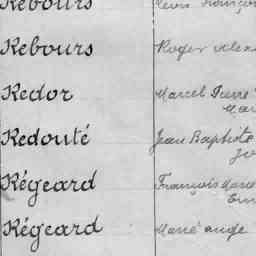 Rebours
Rebours Roger
Redor Marcel Pierre
Redouté Jean Baptiste
Régeard François
Régeard Marie ange